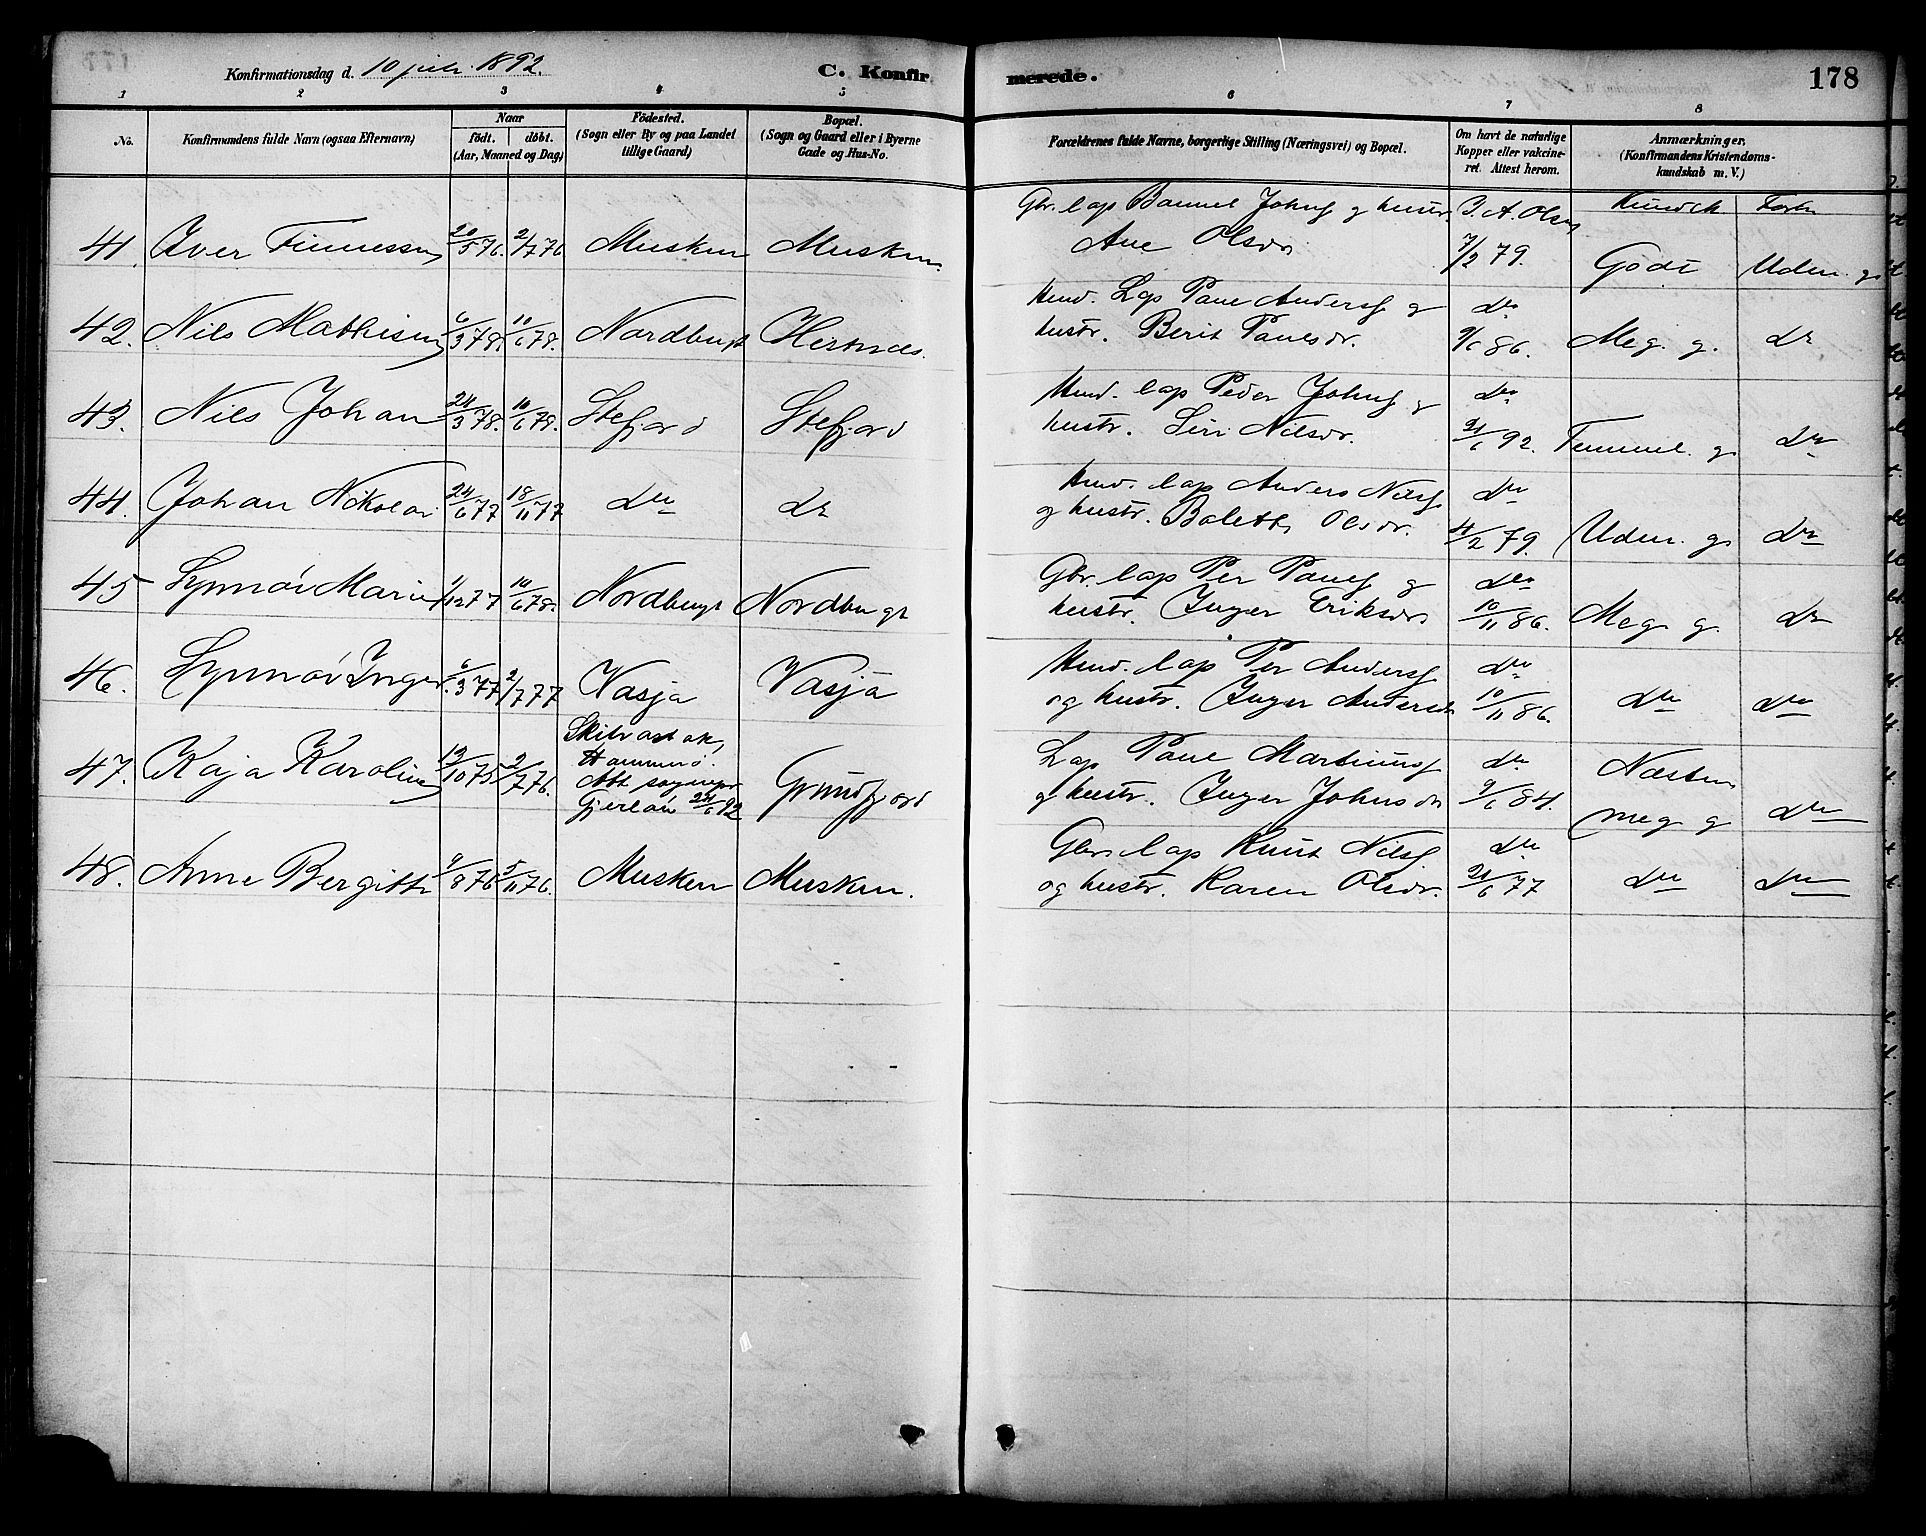 Konfirmationsdag d. 10 juli 1892. C. Konfirmerede. 178
1 2 3 4 5 6 7 8
No. Konfirmandens fulde Navn (ogsaa Efternavn) Naar født. døbt. (Aar, Maaned og Dag) Fødested. (Sogn eller By og paa Landet tillige Gaard) Bopæl. (Sogn og Gaard eller i Byerne Gade og Hus-No. Forældrenes fulde Navne, borgerlige Stilling (Næringsvei) og Bopæl. Om havt de naturlige Kopper eller vakcineret. Attest herom. Anmærkninger. (Konfirmandens Kristendomskundskab m. V.)
Gbr. lap Johns og hustr. J. A. Olsen Kundsk
41. Iver 20/5 76. 2/7 76 Musken Musken. Ane Olsdr 7/2 79. Godt Uden. g
Lap Paul Anders og do
42. Nils Mathisen 6/3 78. 10/6 78. Nordbugt Hernes. hustr. Berit Paulsdr. 9/6 86. Meg. g. do
lap Peder Johns og do
43. Nils Johan 24/3 78. 10/6 78. Stefjord Stefjord hustr. Siri Nilsdr. 21/6 92. Temmel. g do
lap Anders Nils do
44. Johan Nikolai 24/6 77 18/11 77 do do og hustr. Olsdr. 11/2 79. Uden. g do
Gbr. lap Per Pauls og do
45 Synnøi Marie 1/12 77 10/6 78. Nordbugt Nordbugt hustr. Inger Eriksdr 10/11 86. Meg g. do
lap Per Anders do
46. Synnøi Inger 6/3 77 2/7 77 Vasja Vasja og hustr. Inger Andersdr 10/11 86. do do
47. Kaja Karoline 12/10 75 2/7 76. Hammerø. Grundfjord Lap Paul Martinus do Næsten
Att. sognepr
Gjerløw 22/6 92 og hustr. Inger Johnsdr 9/6 84. meg g do
Gbr. lap Knut Nils do
48. Anne Bergitte 9/8 76 5/11 76. Musken Musken. og hustr. Karen Olsdr. 21/6 77 do do